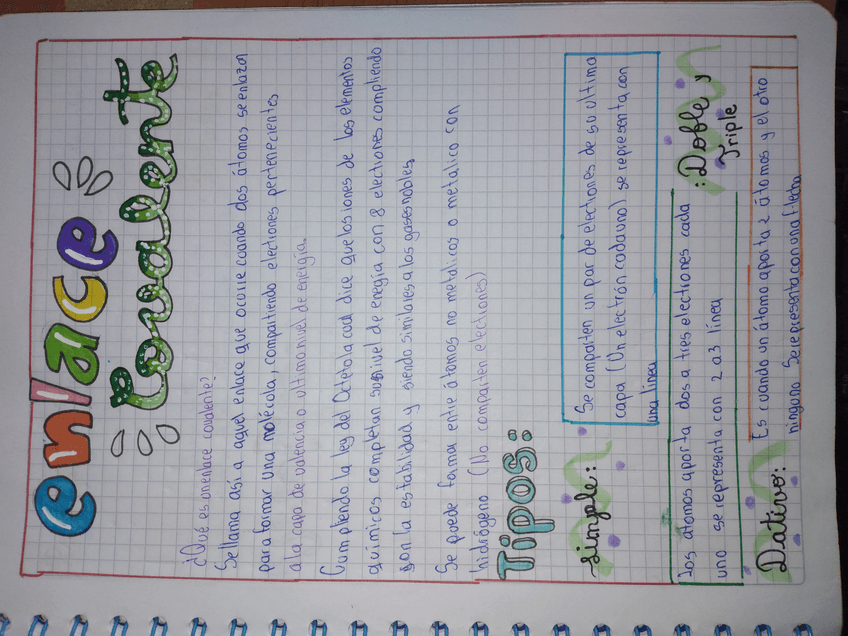 enlace
Covalente
¿Qué es un enlace covalente?
Se llama así a aquel enlace que ocurre cuando dos átomos se enlazan
para formar una molécula, compartiendo electrones pertenecientes
a la capa de valencia o ultimo nivel de energía.
Cumpliendo la ley del Octeto la cual dice que los iones de los elementos
químicos completan su nivel de enegia con 8 electrones cumpliendo
con la estabilidad y siendo similares a los gases nobles
Se puede formar entre átomos no metalicos o metalico con
hidrógeno (No comparten electrones)
Tipos:
Simple:
Se comparten un par de electrones de su ultima
capa (Un electrón cada uno) se representa con
una línea
:Doble y
Triple
los átomos aporta dos a tres electrones cada
uno se representa con 2 a 3 línea
Dativo:
Es cuando un átomo aporta 2 átomos y el otro
ninguno Se representa con una flecha